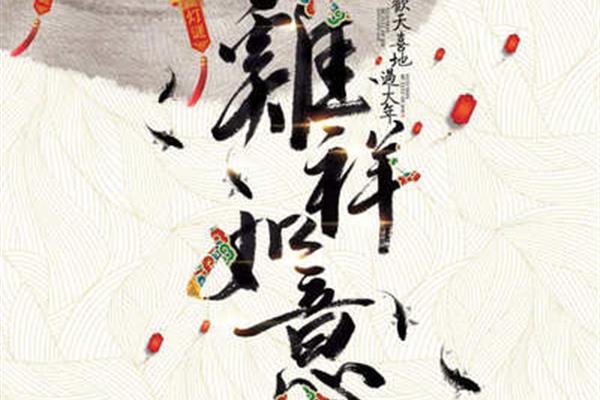 雞祥如意
歡天喜地
過大年
灯謎